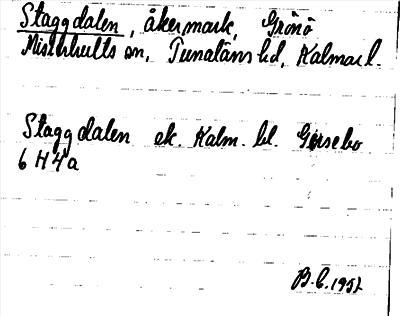 Staggdalen, åkermark, Grönö
Misterhults sn, Tunaläns hd, Kalmar l.
Staggdalen ek. Kalm. bl. Gersebo
6 H 4 a
B.C. 1952